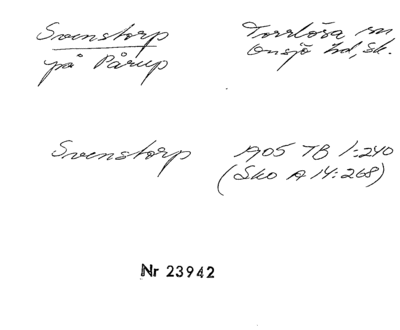 Svenstorp
på Pårup
Torrlösa sn
Onsjö hd, Sk.
Svenstorp
1905 TB 1:240
(Sko A 14:268)
Nr 23942